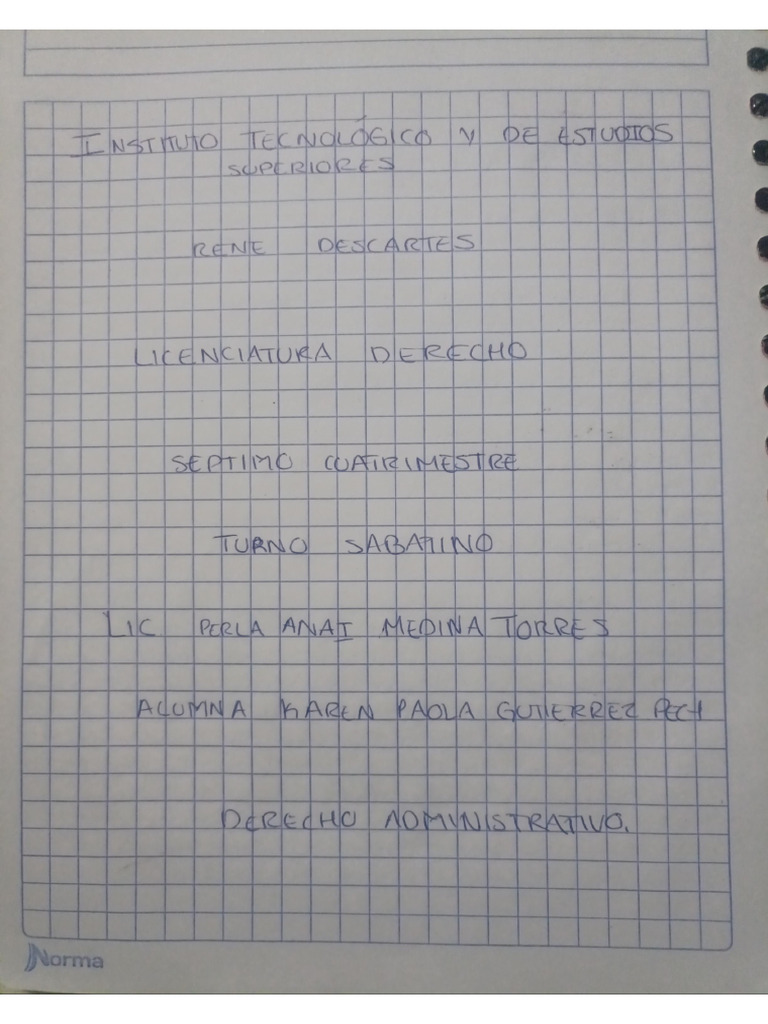 INSTITUTO TECNOLÓGICO Y DE ESTUDIOS
SUPERIORES
RENE DESCARTES
LICENCIATURA DERECHO
SEPTIMO CUATRIMESTRE
TURNO SABATINO
LIC PERLA ANAI MEDINA TORRES
ALUMNA KAREN PAOLA GUTIERREZ PECH
DERECHO ADMINISTRATIVO.
Norma